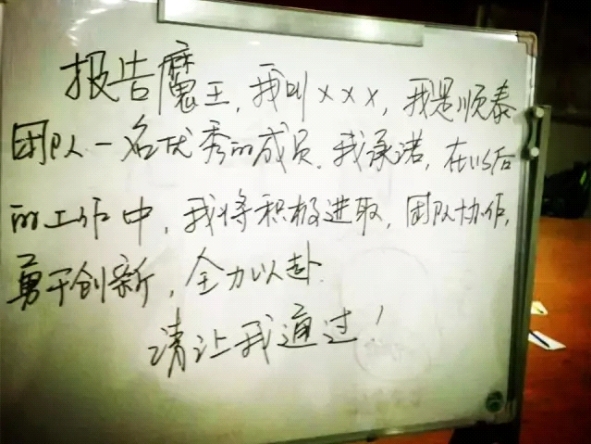 报告魔王,我叫×××,我是顺泰
团队一名优秀的成员.我承诺,在以后
的工作中,我将积极进取,团队协作,
勇于创新,全力以赴.
请让我通过!